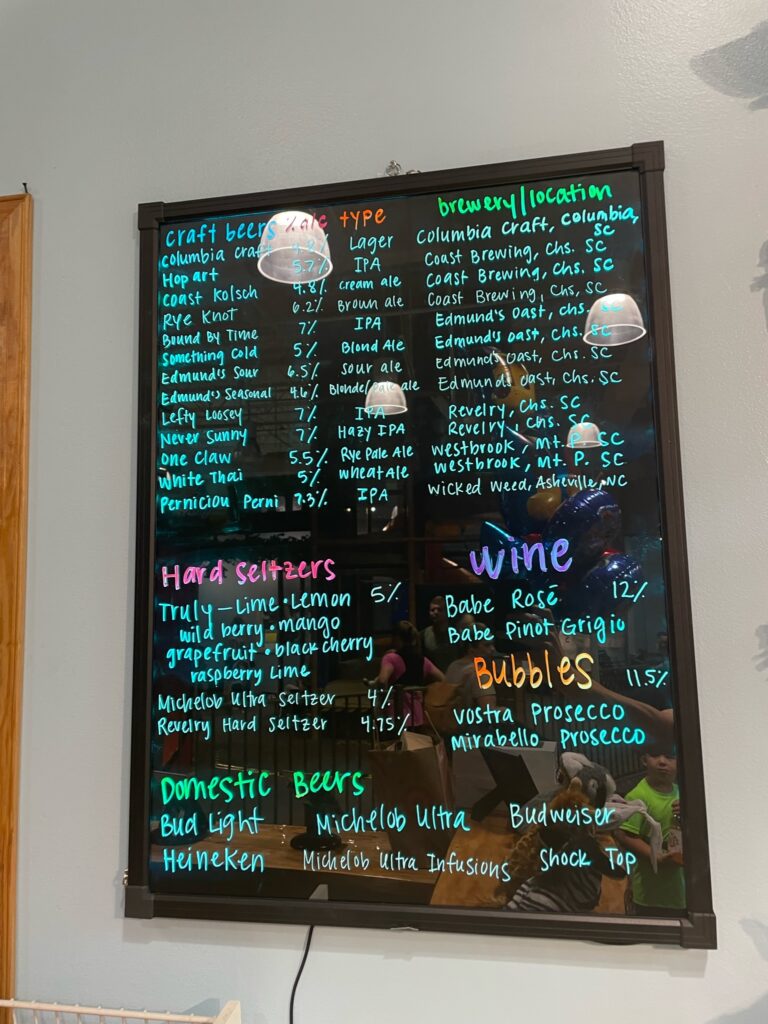 craft beers % alc type brewery/location
Columbia Craft 4.8% Lager Columbia Craft, Columbia, SC
Hop art 5.7% IPA Coast Brewing, Chs. SC
Coast Kolsch 4.8% cream ale Coast Brewing, Chs. SC
Rye Knot 6.2% Brown ale Coast Brewing, Chs, SC
Bound By Time 7% IPA Edmund's Oast, Chs. SC
Something Cold 5% Blond Ale Edmund's Oast, Chs. SC
Edmund's Sour 6.5% sour ale Edmund's Oast, Chs. SC
Edmund's Seasonal 4.6% Blonde/Pale ale Edmund's Oast, Chs. SC
Lefty Loosey 7% IPA Revelry, Chs. SC
Never Sunny 7% Hazy IPA Revelry, Chs. SC
One Claw 5.5% Rye Pale Ale Westbrook, Mt. P. SC
White Thai 5% Wheat Ale Westbrook, Mt. P. SC
Perniciou Perni 7.3% IPA Wicked Weed, Asheville, NC
Hard Seltzers
Truly - Lime • Lemon 5%
wild berry • mango
grapefruit • black cherry
raspberry lime
Michelob Ultra Seltzer 4%
Revelry Hard Seltzer 4.75%
Wine
Babe Rosé 12%
Babe Pinot Grigio
Bubbles 11.5%
Vostra Prosecco
Mirabello Prosecco
Domestic Beers
Bud Light Michelob Ultra Budweiser
Heineken Michelob Ultra Infusions Shock Top